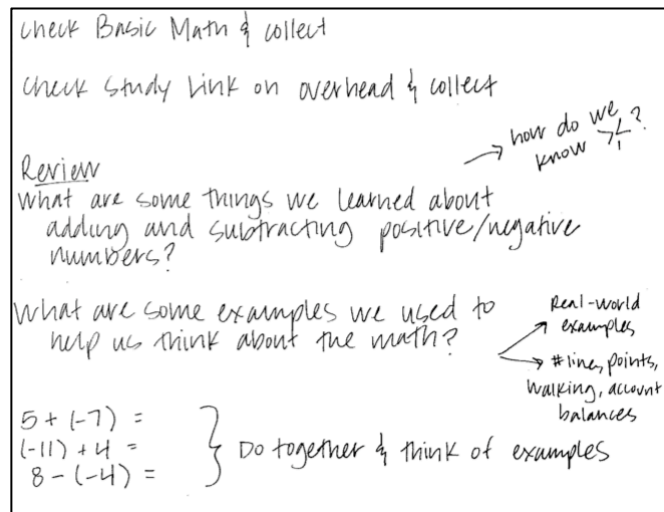 Check Basic Math & collect
Check Study Link on overhead & collect
→ how do we
know >,<?
Review
What are some things we learned about
adding and subtracting positive/negative
numbers?
What are some examples we used to
help us think about the math?
Real-world
examples
#line, points,
walking, account
balances
5 + (-7) =
(-11) + 4 =
8 - (-4) =
Do together & think of examples